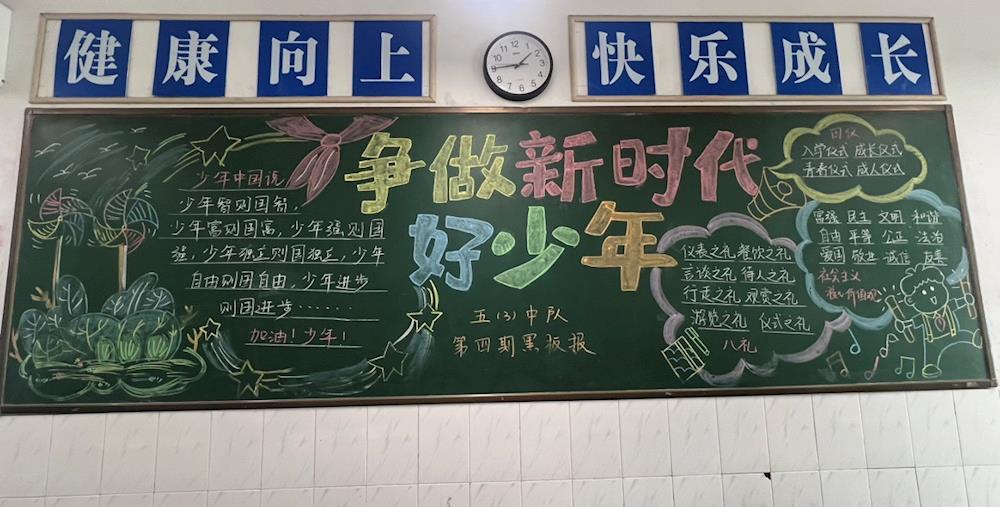 健康向上
快乐成长
争做新时代
好少年
五(3)中队
第四期黑板报
少年中国说
少年智则国智,
少年富则国富,少年强则国
强,少年独立则国独立,少年
自由则国自由,少年进步
则国进步······
加油!少年!
四仪
入学仪式 成长仪式
青春仪式 成人仪式
仪表之礼 餐饮之礼
言谈之礼 待人之礼
行走之礼 观赏之礼
游览之礼 仪式之礼
八礼
富强 民主 文明 和谐
自由 平等 公正 法治
爱国 敬业 诚信 友善
社会主义
核心价值观
12
1
2
3
4
5
6
7
8
9
10
11